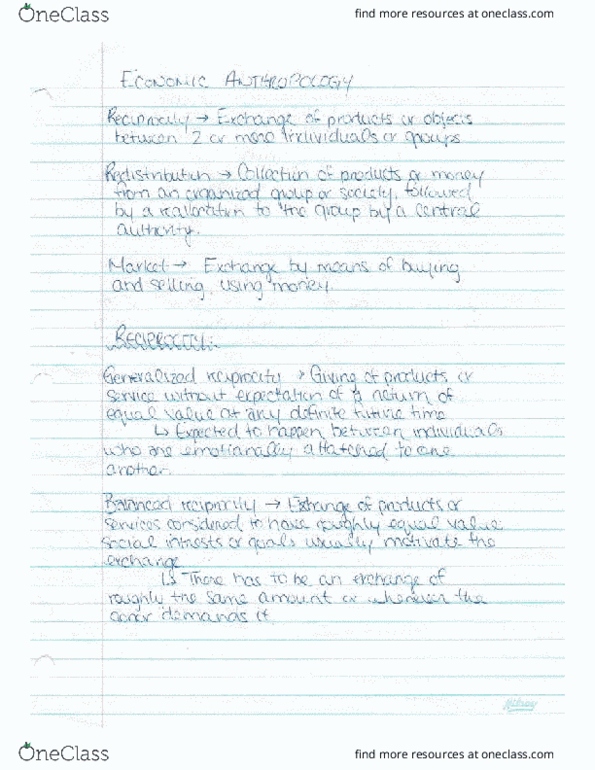 OneClass
find more resources at oneclass.com
ECONOMIC ANTHROPOLOGY
Reciprocity → Exchange of products or objects
between 2 or more individuals or groups
Redistribution → Collection of products or money
from an organized group or society, followed
by a reallocation to the group by a central
authority.
Market → Exchange by means of buying
and selling, using money.
RECIPROCITY:
Generalized reciprocity → Giving of products or
service without expectation of a return of
equal value at any definite future time
↳ Expected to happen between individuals
who are emotionally attatched to one
another.
Balanced reciprocity → Exchange of products or
services considered to have roughly equal value
social intrests or goals usually motivate the
exchange
↳ There has to be an exchange of
roughly the same amount or whenever the
donor demands it
Hilroy
OneClass
find more resources at oneclass.com